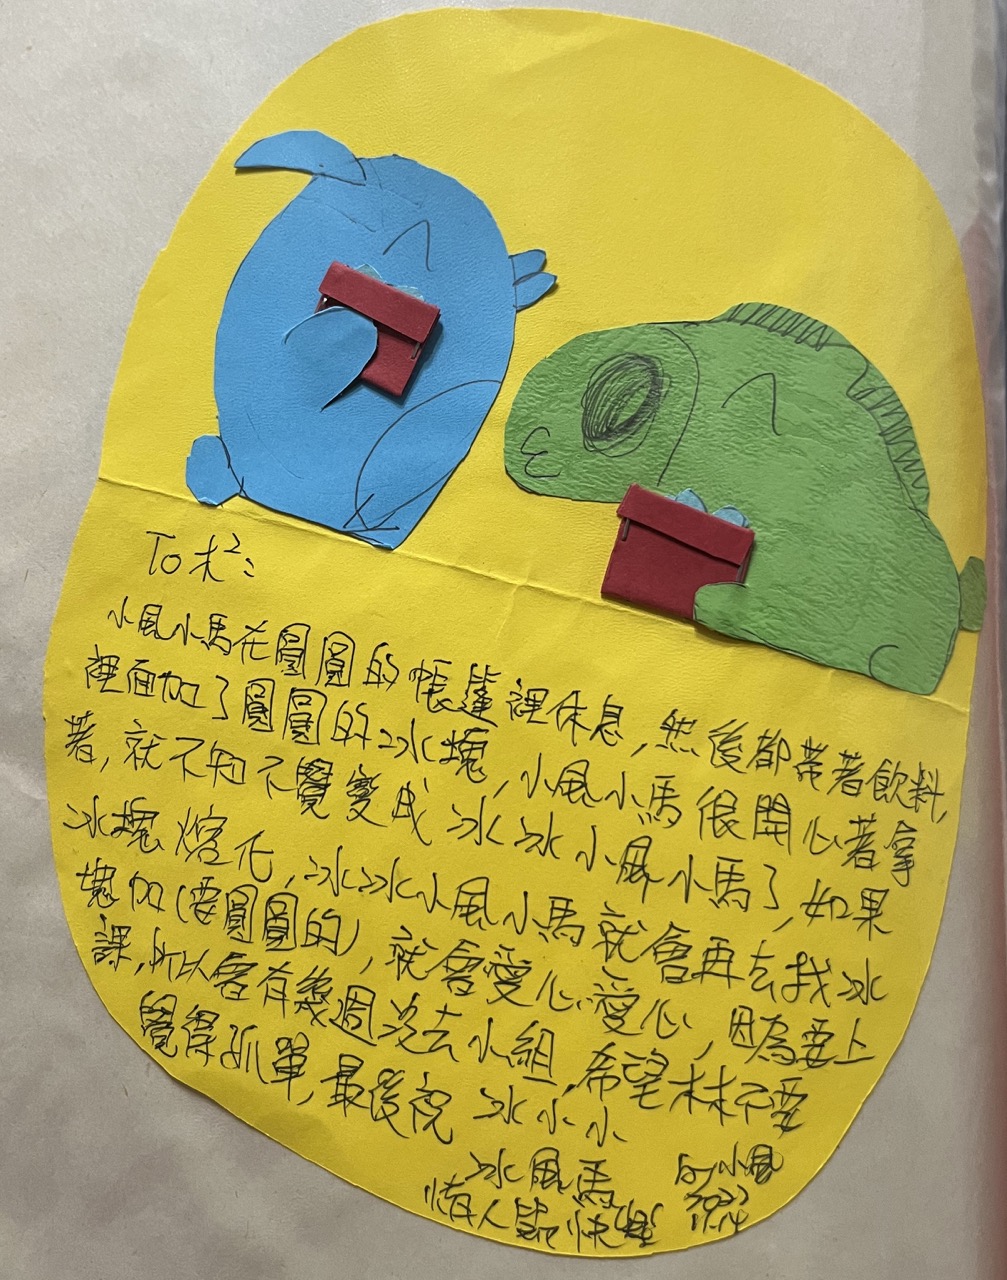 To 木²:
小風小馬在圓圓的帳篷裡休息,然後都帶著飲料,
裡面加了圓圓的冰塊,小風小馬很開心著拿
著,就不知不覺變成冰冰小風小馬了,如果
冰塊熔化,冰冰小風小馬就會再去找冰
塊加(要圓圓的),就會愛心愛心,因為要上
課,所以會有幾週沒去小組,希望木木不要
覺得孤單,最後祝 冰小小
冰風馬
情人節快樂
by 小風
11.14